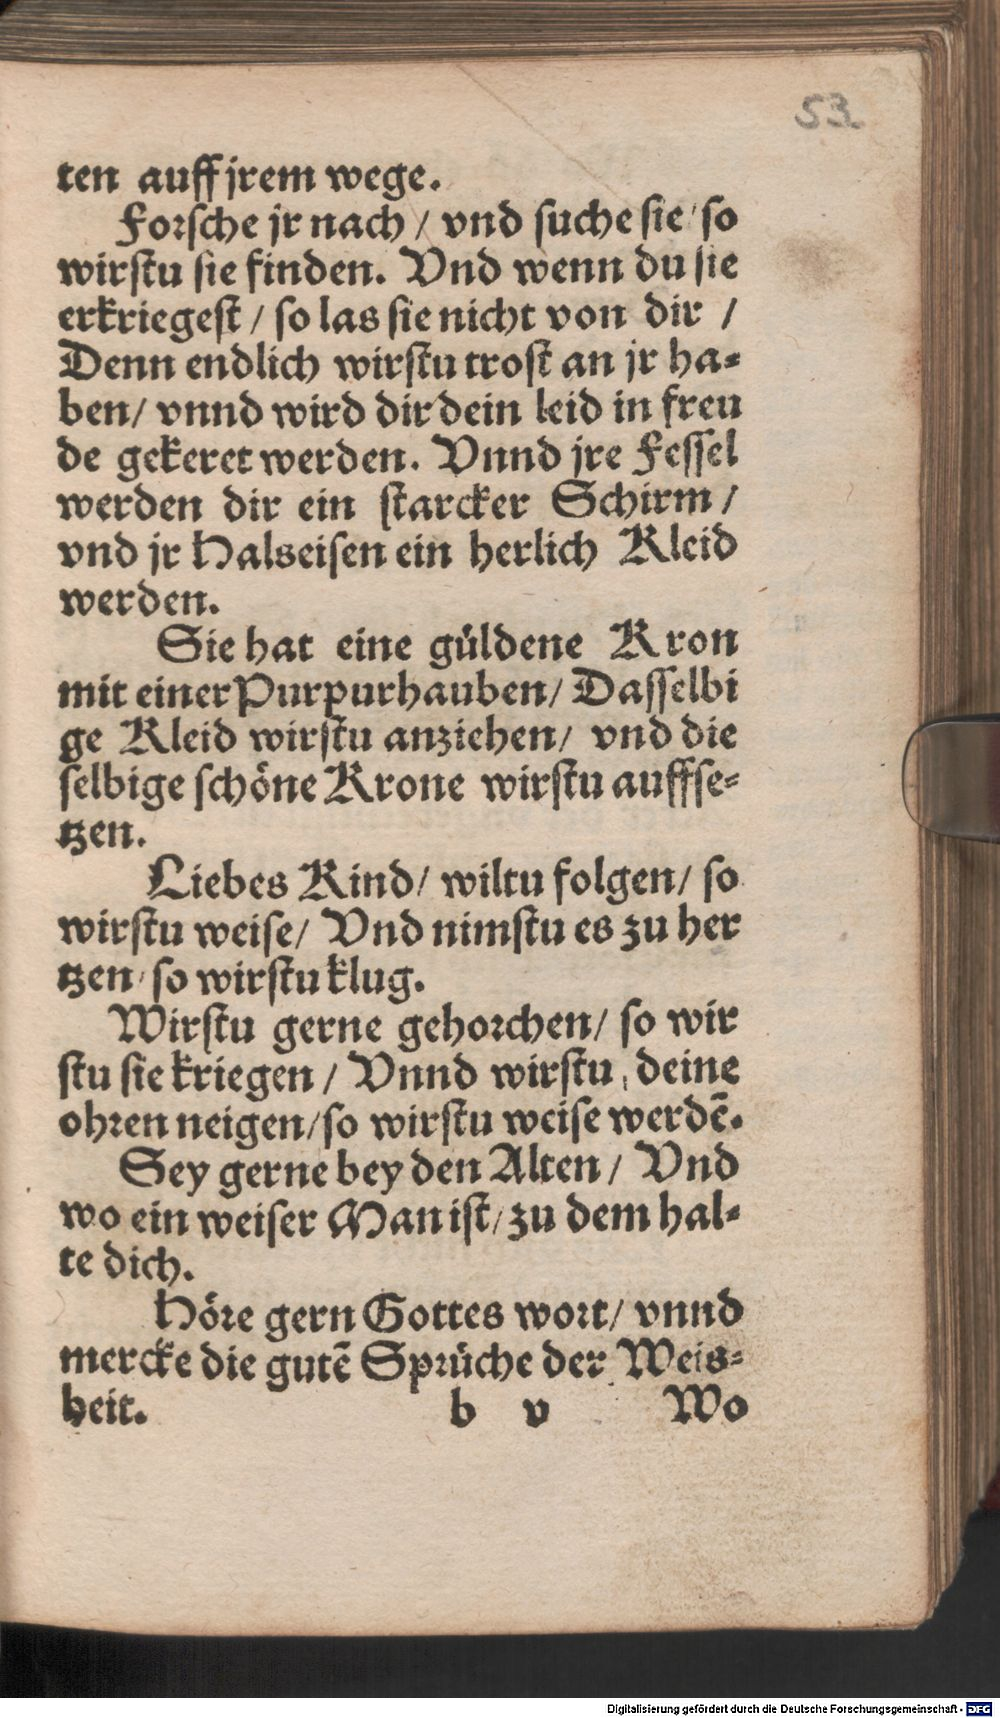 53
ten auff jrem wege.
Forsche jr nach / vnd suche sie / so
wirstu sie finden. Vnd wenn du sie
erkriegest / so las sie nicht von dir /
Denn endlich wirstu trost an jr ha-
ben / vnnd wird dir dein leid in freu
de gekeret werden. Vnnd jre Fessel
werden dir ein starcker Schirm /
vnd jr Halseisen ein herlich Kleid
werden.
Sie hat eine güldene Kron
mit einer Purpurhauben / Dasselbi
ge Kleid wirstu anziehen / vnd die
selbige schöne Krone wirstu auffse-
tzen.
Liebes Kind / wiltu folgen / so
wirstu weise / Vnd nimstu es zu her
tzen / so wirstu klug.
Wirstu gerne gehorchen / so wir
stu sie kriegen / Vnnd wirstu deine
ohren neigen / so wirstu weise werdẽ.
Sey gerne bey den Alten / Vnd
wo ein weiser Man ist / zu dem hal-
te dich.
Höre gern Gottes wort / vnnd
mercke die gutẽ Sprüche der Weis-
heit. b v Wo
Digitalisierung gefördert durch die Deutsche Forschungsgemeinschaft - DFG